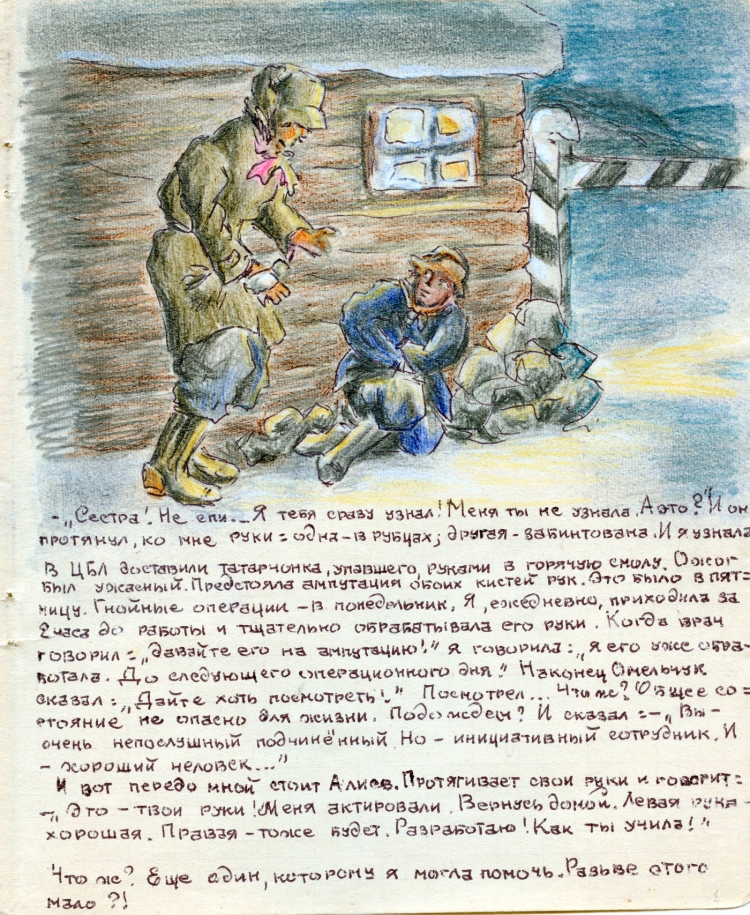 -„Сестра! Не спи... Я тебя сразу узнал! Меня ты не узнала. А это?" И он
протянул, ко мне руки = одна - в рубцах; другая - забинтована. И я узнала
В ЦБЛ доставили татарчонка, упавшего, руками в горячую смолу. Ожог
был ужасный. Предстояла ампутация обоих кистей рук. Это было в пят=
ницу. Гнойные операции - в понедельник. Я, ежедневно, приходила за
2 часа до работы и тщательно обрабатывала его руки. Когда врач
говорил = „давайте его на ампутацию!" я говорила: „я его уже обра-
ботала. До следующего операционного дня." Наконец Омельчук
сказал: „Дайте хоть посмотреть!" Посмотрел... Что ж? Общее со=
стояние не опасно для жизни. Подождем? И сказал = - „Вы -
очень непослушный подчинённый. Но - инициативный сотрудник. И
- хороший человек..."
И вот передо мной стоит Алиев. Протягивает свои руки и говорит =
-„Это - твои руки! Меня актировали. Вернусь домой. Левая рука -
хорошая. Правая - тоже будет. Разработаю! Как ты учила!"
Что ж? Еще один, которому я могла помочь. Разьве этого
мало?!